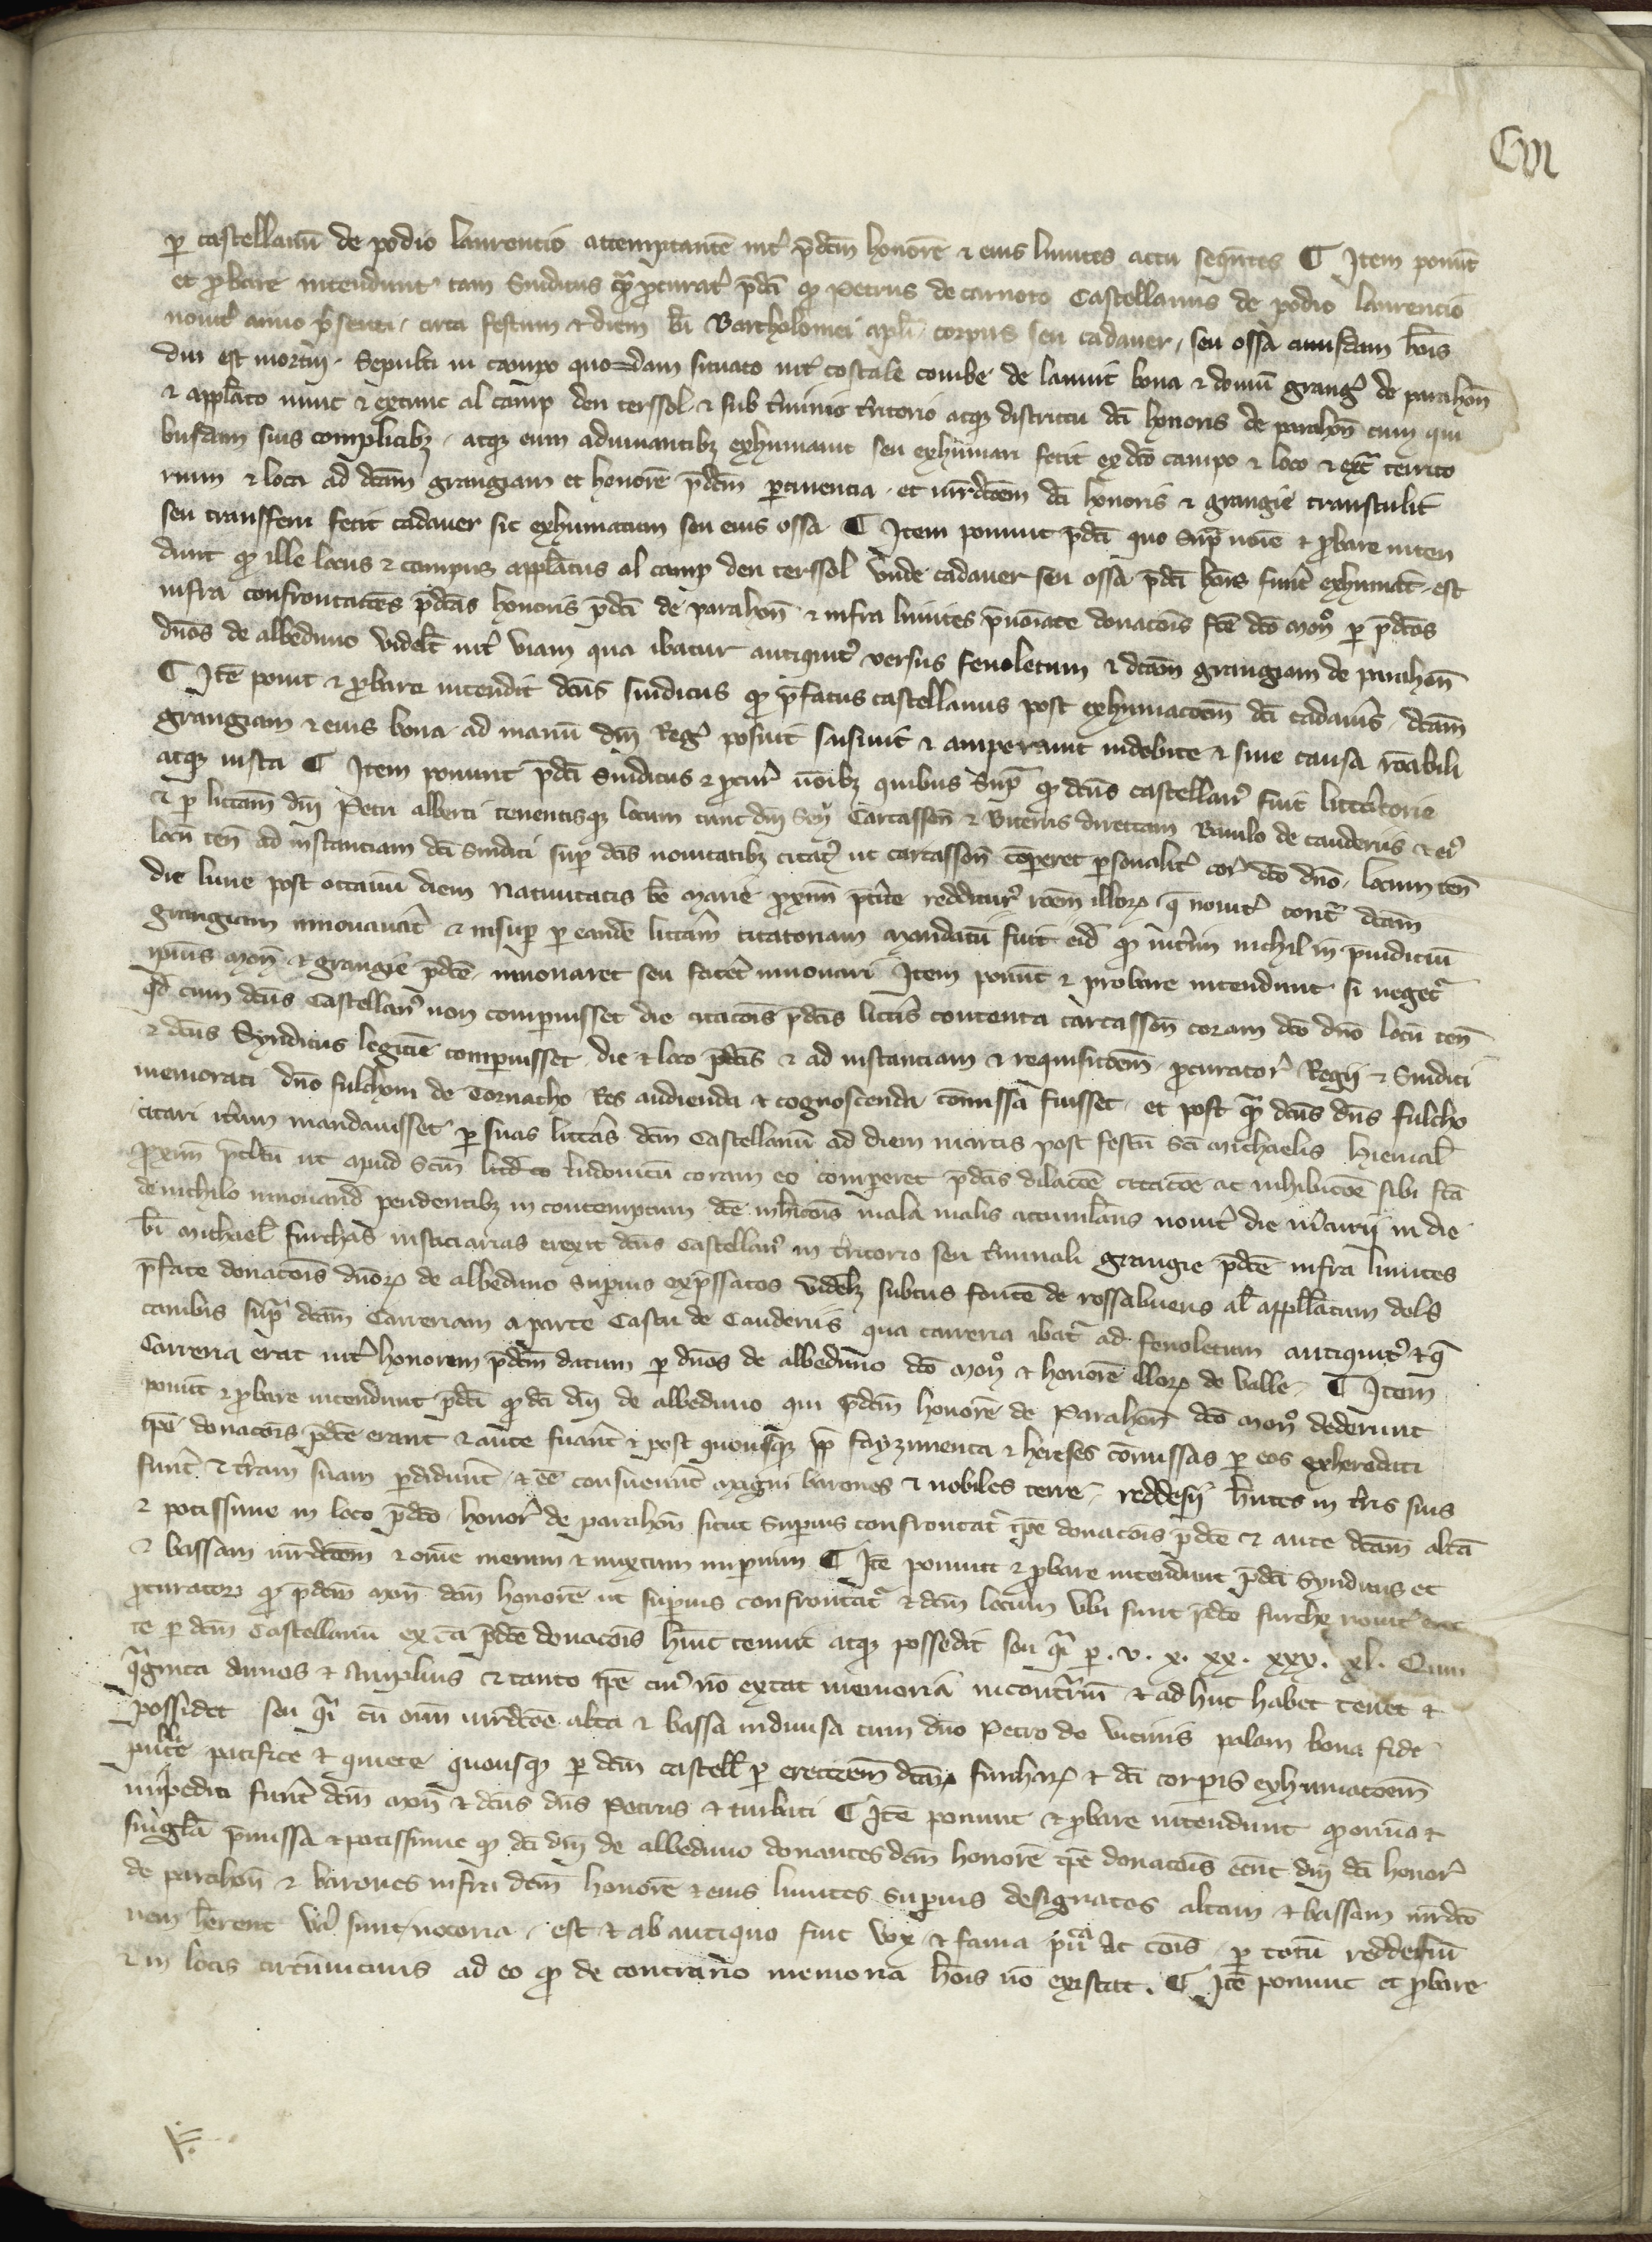 CVI
p castellanū de podio laurencio attemptantē int̉ p̄dc̄m honorē ⁊ eius limites actu seqn̄tes ¶ Item ponūt
et ꝓbare intendunt tam Sindicus qua̅ ꝓcurat̉ p̄dc̄i ꝙ Petrus de carnoto Castellanus de podio laurencio
nouit̉ anno p̉senti, circa festum ⁊ diem bī Bartholomei apl̄i, corpus seu cadauer, seu ossa cuiusdam hōis
diu est mortui, Sepulti in campo quodam situato int̉ costale combe de lauuit bona ⁊ domū grang̉ de parahoñ
⁊ appl̄ato nunc ⁊ extunc al camp den terssol ⁊ sub t̉minio t̉ritorio atqꝫ districtu dc̄i honoris de parahoñ cum qui
busdam suis complicibꝫ, atqꝫ eum adiuuantibꝫ exhumauit seu exhumari fecit ex dc̄o campo ⁊ loco ⁊ ext̄ territo
rium ⁊ loca ad dc̄am grangiam et honorē p̄dc̄m ꝑtinencia, et iurdc̄oem dc̄i honoris ⁊ grangie transtulit
seu transferri fecit cadauer sic exhumatum seu eius ossa ¶ Item ponunt p̄dc̄i quo Sup̄ noīe ⁊ ꝓbare inten
dunt ꝙ ille locus ⁊ campus appl̄atus al camp den terssol vnde cadauer seu ossa p̄dc̄i hōis fuer̄t exhumata, est
infra confrontac̄oes p̄dc̄as honoris p̄dc̄i de parahoñ ⁊ infra limites p̄noīate donac̄ois fc̄e dc̄o moñ ꝑ p̄dc̄os
dn̄os de albeduno videlt̄ int̉ viam qua ibatur antiquit̉ versus fenoletum ⁊ dc̄am grangiam de parahoñ
¶ Itē ponit ⁊ ꝓbare intendit dc̄us sindicus ꝙ p̄fatus castellanus post exhumac̄oem dc̄i cadau̅is, dc̄am
grangiam ⁊ eius bona ad manū dn̄i Reg̉ posuit saisiuit ⁊ amparauit indebite ⁊ sine causa rōabili
atqꝫ iusta ¶ Item ponunt p̄dc̄i Sindicus ⁊ ꝓcur̄ noīibꝫ quibus Sup̄ ꝙ dc̄us castellan̉ fuit litt̉atorie
⁊ ꝑ litt̄am dn̄i Petri alberti tenentisqꝫ locum tunc dn̄i Señ Carcassoñ ⁊ Biterris directam Baiulo de cauderiis ⁊ eỉ
locū teñ ad instanciam dc̄i Sindici sup̱ dc̄is nouitatibꝫ citat̉ ut carcassoñ cōpareret ꝑsonalit̉ cor̄ dc̄o dn̄o, locum teñ
die lune post octauū diem Natiuitatis bē Marie ꝓxim̄ p̄t̉ite redditur̉ rōem illorꝫ q̄ nouit̉ cont̄ dc̄am
grangiam innouauat̄ ⁊ insuꝑ ꝑ eandē litt̄am citatoriam mandatū fuit eid̄ ꝙ int̉im nichil in p̄iudiciū
ipius moñ ⁊ grangie p̄dc̄e, innouaret seu facet̉ innouari Item ponūt ⁊ probare intendunt si neget̄
qd̄ cum dc̄us Castellan̉ non comparuisset die citac̄ois p̄dc̄is litt̉is contenta carcassoñ coram dc̄o dn̄o locū teñ
⁊ dc̄us Syndicus legitīe comparuisset, die ⁊ loco p̄dc̄is ⁊ ad instanciam ⁊ requisic̄oem, ꝓcurator̉ Regii ⁊ Sindici
memorati dn̄o fulchoni de Tornacho Res audienda ⁊ cognoscenda com̄issa fuisset, et post qua̅ dc̄us dn̄s fulcho
citari it̉um mandauisset ꝑ suas litt̉as dc̄m Castellanū ad diem martis post festū Sc̄i Michaelis hiemal̄
ꝓxim̄ ut apud Sc̄m ludouicū coram eo compareret p̄dc̄is dilac̄oe citac̄oe ac inhibic̄oe sibi fc̄a
de nichilo innouand̄ pendentibꝫ in contemptum dc̄e inhibic̄ois mala malis acumulans nouit̉ die m̄curii in die
bī Michael̄ furchas iusticiarias erexit dc̄us Castellan̉ in t̉ritorio seu t̉minali grangie p̄dc̄e infra limites
p̄fate donac̄ois dn̄orꝫ de albeduno sup̱ius exp̄ssatos videlꝫ subtus fontē de rossabueris al̄ appl̄latum dels
cambis sup̄ dc̄am Carreriam a parte Castri de Cauderiis qua carreria ibat̄ ad fenoletum antiquit̉ ⁊ q̄
Carreria erat int̉ honorem p̄dc̄m datum ꝑ dn̄os de albeduno dc̄o moñ ⁊ honorē illorꝫ de valle, ¶ Item
ponūt ⁊ ꝓbare intendunt p̄dc̄i ꝙ dc̄i dn̄i de albeduno qui p̄dc̄m honorē de Parahoñ dc̄o moñ dederunt
tp̄e donac̄ois p̄dc̄e erant ⁊ ante fuerāt ⁊ post quousqꝫ pp̄ fayzimenta ⁊ hereses cōmissas ꝑ eos exheredati
fuer̄t ⁊ t̄ram suam ꝑdiderūt, ⁊ eē consueuerūt magni barones ⁊ nobiles terre, reddesii hn̄tes in t̄ris suis
⁊ potissime in loco p̄dc̄o honor̉ de parahoñ sicut superius confrontat̄ tp̄e donac̄ois p̄dc̄e ⁊ ante dc̄am altā
⁊ bassam iurdc̄oem ⁊ om̄e merum ⁊ mixtum imperium ¶ Itē ponunt ⁊ ꝓbare intendunt p̄dc̄i Syndicus et
ꝓcurator ꝙ p̄dc̄m moñ dc̄m honorē ut superius confrontat̄ ⁊ dc̄m locum vbi sunt p̄dc̄e furche nouit̉ erec
te ꝑ dc̄m Castellanū ex cā p̄dc̄e donac̄ois hūit tenuit atqꝫ possedit seu qi̅ ꝑ .v. x. xx. xxx. xl. Quin
qu̅ginta annos ⁊ amplius ⁊ tanto tp̄e cuỉ nō extat memoria incontrariū ⁊ ad huc habet tenet ⁊
possidet seu qi̅ cū om̄i iurdc̄oe alta ⁊ bassa indiuisa cum dn̄o Petro de vicinis palam bona fide
publice pacifice ⁊ quiete quousqꝫ ꝑ dc̄m castell̄ ꝑ erecc̄oem dc̄arꝫ furcharꝫ ⁊ dc̄i corꝑis exhumac̄oem
impediti fuer̄t dc̄m moñ ⁊ dc̄us dn̄s Petrus ⁊ turbati ¶ Itē ponunt ⁊ ꝓbare intendunt ꝙ om̄ia ⁊
singl̄a p̄missa ⁊ potissime ꝙ dc̄i dn̄i de albeduno donantes dc̄m honorē tp̄e donac̄ois eēnt dn̄i dc̄i honor̉
de parahoñ ⁊ barones infra dc̄m honorē ⁊ eius limites superius designatos altam ⁊ bassam iurdc̄o
nem hērent vā sunt, notoria, est ⁊ ab antiquo fuit vox ⁊ fama pu̅a ac cōis, ꝑ totū reddesiū
⁊ in locis circūuicinis ad eo ꝙ de contrario memoria hōis nō existat. ¶ Itē ponunt et ꝓbare